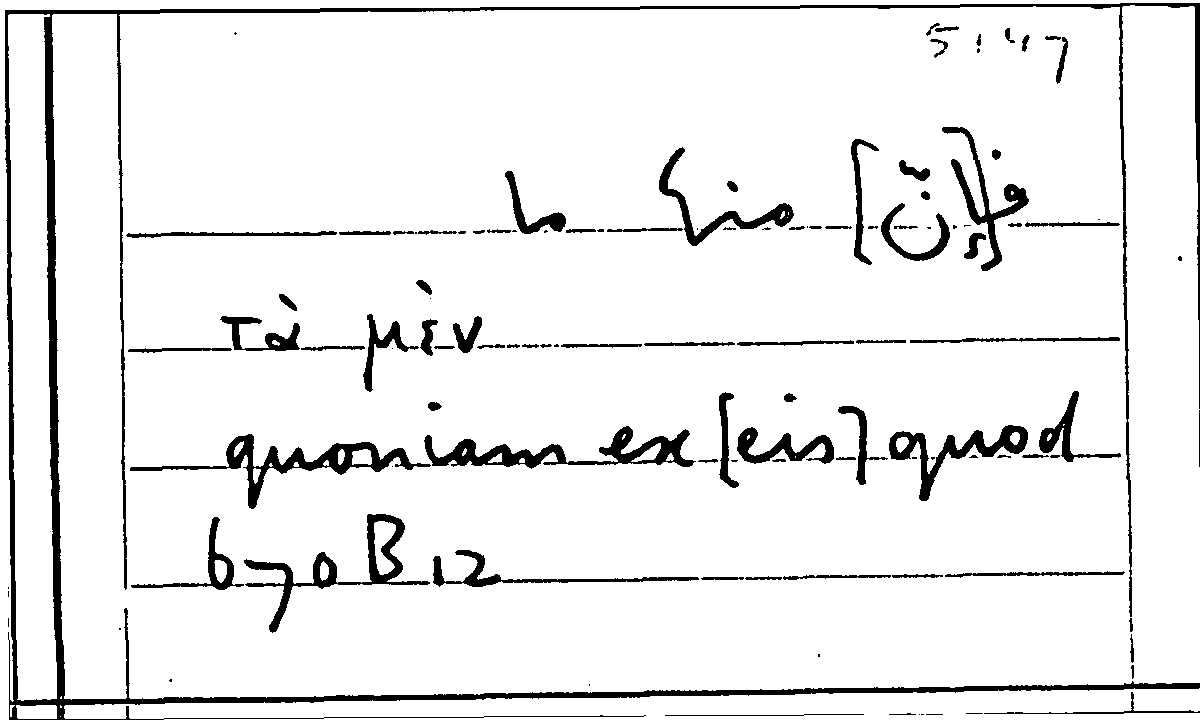 5147
τὰ μὲν
quoniam ex [eis] quod
670 B 12